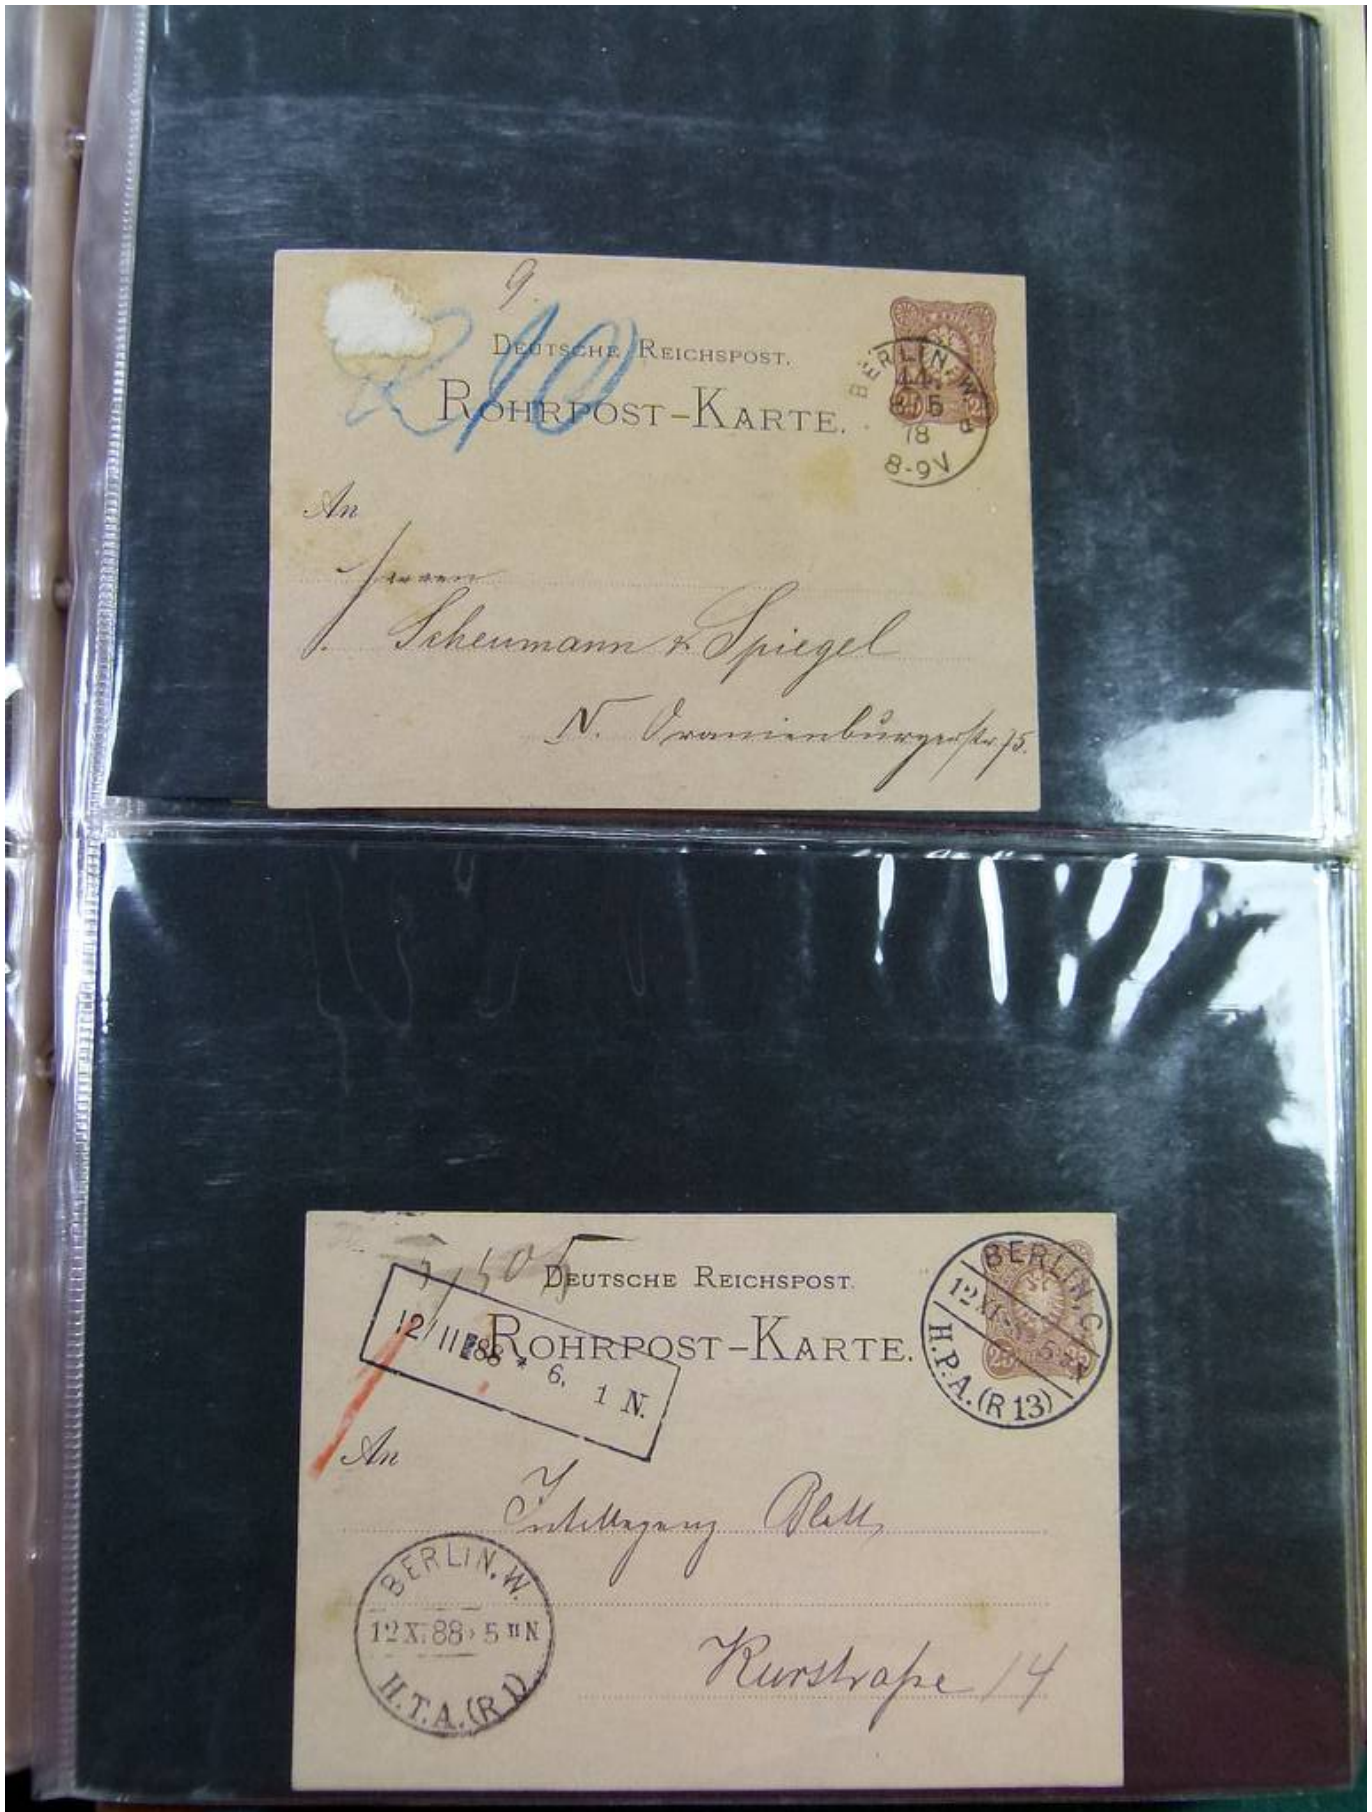 9.
210
DEUTSCHE REICHSPOST.
ROHRPOST-KARTE.
BERLIN, W.
44.
5
78
8-9V
25
An
Herren
Scheumann & Spiegel
N. Oranienburgerstr. 75.
DEUTSCHE REICHSPOST.
ROHRPOST-KARTE.
12/11 88 * 6. 1 N.
BERLIN, C.
12 XI
H.P.A. (R 13)
25
An
Intelligenz Blatt,
BERLIN, W.
12 X. 88 5 II N
H.T.A. (R 1)
Kurstraße 14